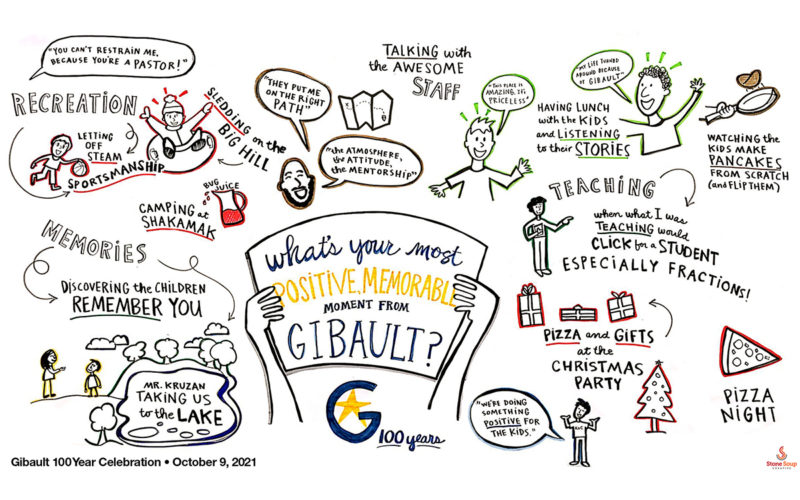 "YOU CAN'T RESTRAIN ME,
BECAUSE YOU'RE A PASTOR!"
RECREATION
LETTING
OFF
STEAM
SPORTSMANSHIP
SLEDDING on the
BIG HILL
BUG
JUICE
CAMPING at
SHAKAMAK
"THEY PUT ME
ON THE RIGHT
PATH"
"the ATMOSPHERE,
the ATTITUDE,
the MENTORSHIP"
TALKING with
the AWESOME
STAFF
"THIS PLACE IS
AMAZING. IT'S
PRICELESS"
"MY LIFE TURNED
AROUND BECAUSE
OF GIBAULT"
HAVING LUNCH
with the KIDS
and LISTENING
to their STORIES
WATCHING the
KIDS MAKE
PANCAKES
FROM SCRATCH
(and FLIP THEM)
TEACHING
when what I was
TEACHING would
CLICK for a STUDENT
ESPECIALLY FRACTIONS!
MEMORIES
DISCOVERING the CHILDREN
REMEMBER YOU
MR. KRUZAN
TAKING US
to the LAKE
what's your most
POSITIVE, MEMORABLE
MOMENT FROM
GIBAULT?
G
100 years
PIZZA and GIFTS
at the
CHRISTMAS
PARTY
PIZZA
NIGHT
"WE'RE DOING
SOMETHING
POSITIVE FOR
THE KIDS."
Gibault 100Year Celebration • October 9, 2021
Stone Soup
CREATIVE